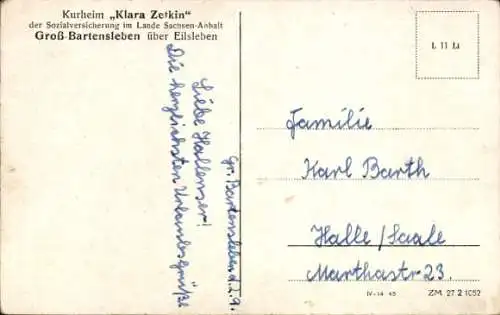 Kurheim „Klara Zetkin"
der Sozialversicherung im Lande Sachsen-Anhalt
Groß-Bartensleben über Eilsleben
Gr. Bartensleben d. 2. 9.
Liebe Hallenser!
Die herzlichsten Urlaubsgrüße
L 11 Li
Familie
Karl Barth
Halle/Saale
Marthastr 23.
IV-14 45
ZM 27 2 1052